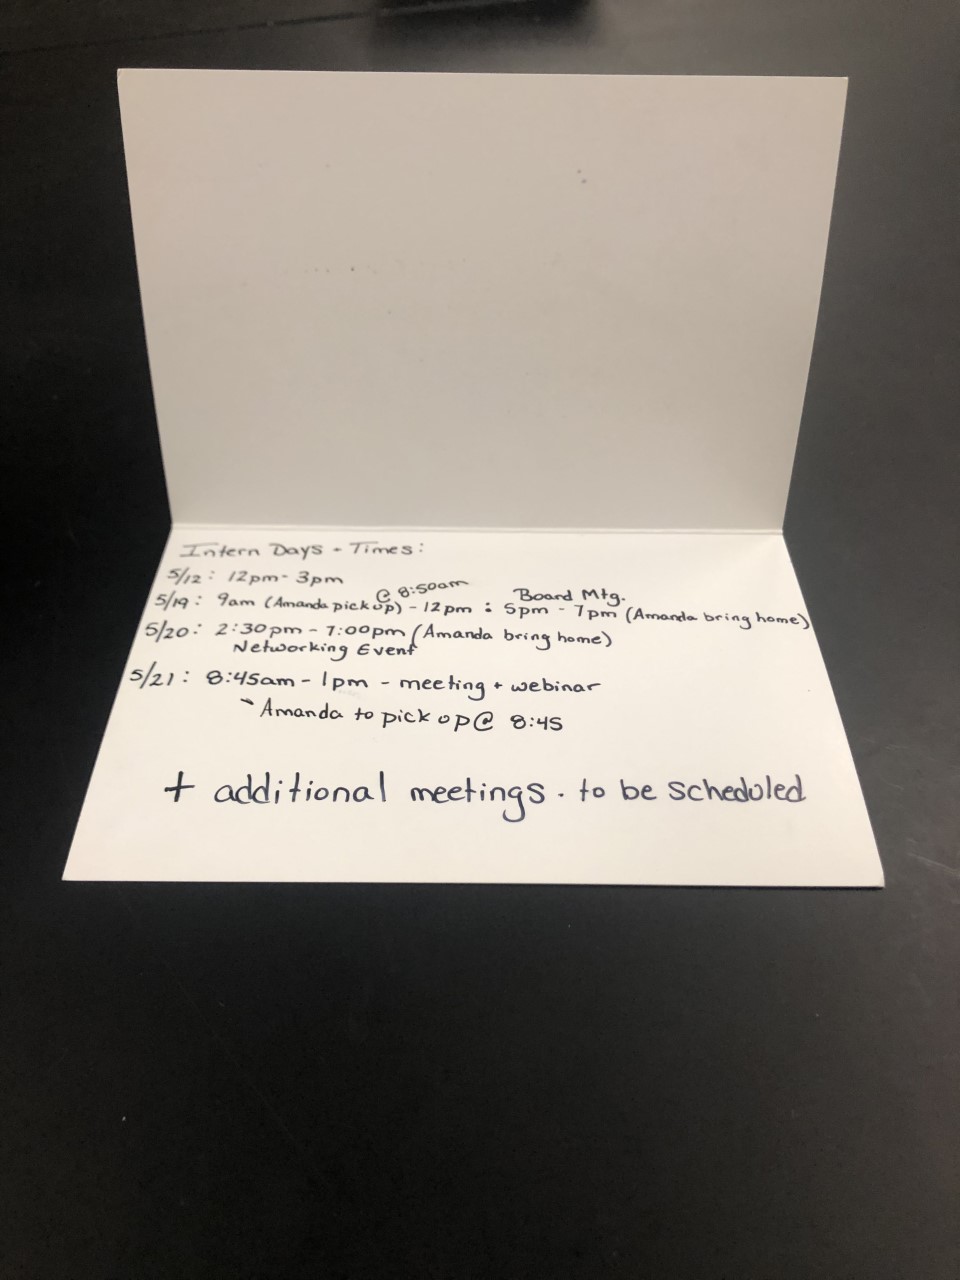 Intern Days - Times:
5/12: 12pm - 3pm
5/19: 9am (Amanda pick up) @ 8:50am - 12pm : 5pm - 7pm Board Mtg. (Amanda bring home)
5/20: 2:30pm - 7:00pm (Amanda bring home)
Networking Event
5/21: 8:45am - 1pm - meeting + webinar
Amanda to pick up @ 8:45
+ additional meetings - to be scheduled